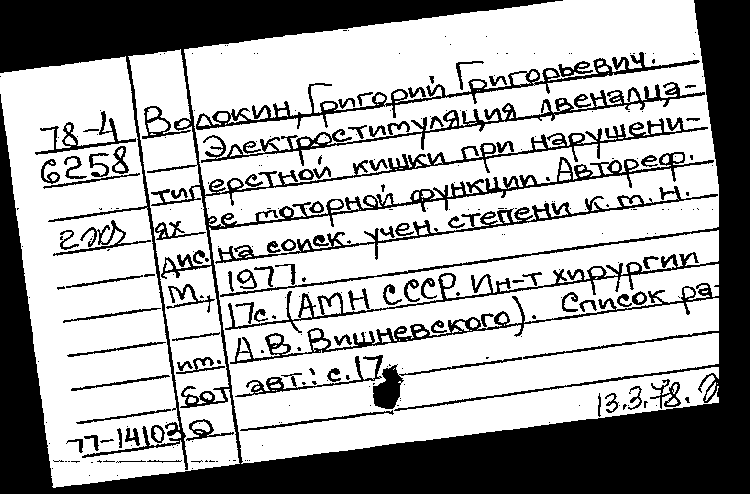 Волокин, Григорий Григорьевич.
78-4
6258
Электростимуляция двенадца-
типерстной кишки при нарушени-
ях ее моторной функции. Автореф.
дис. на соиск. учен. степени к. м. н.
М., 1977.
17с. (АМН СССР. Ин-т хирургии
им. А.В. Вишневского). Список ра-
бот авт.: с.17
77-14103
13.3.78.